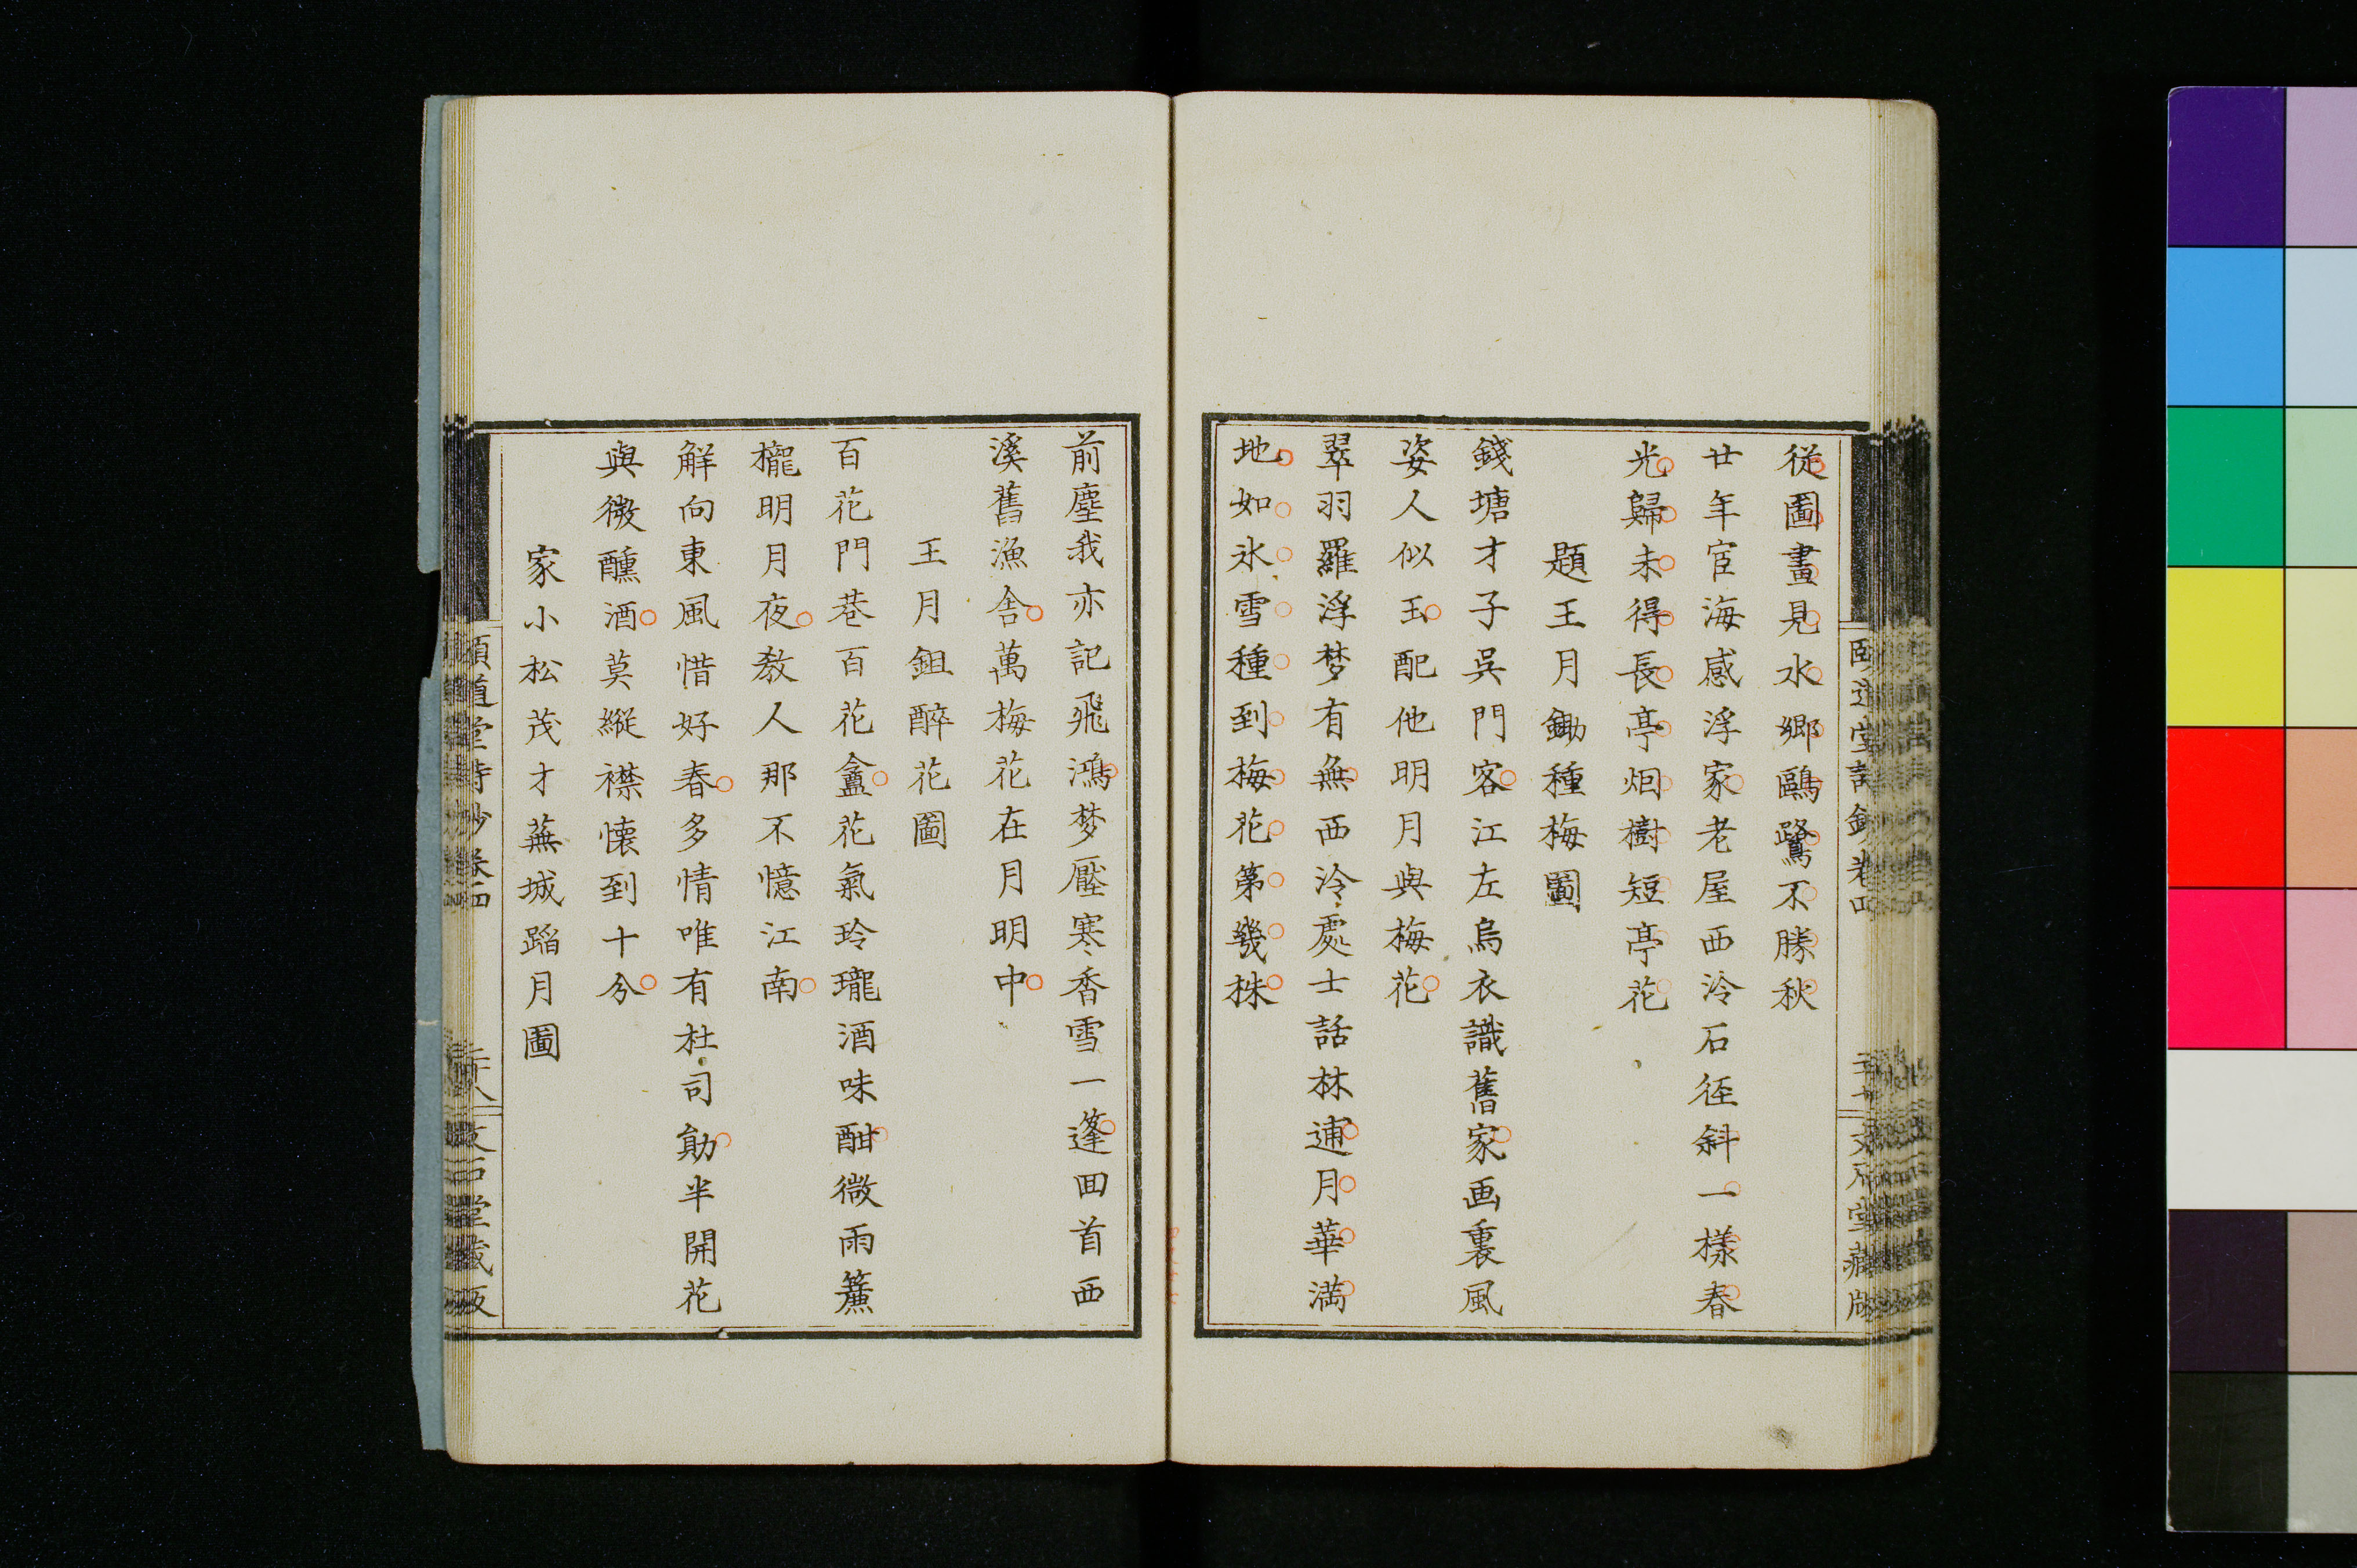 從圖畫見水鄉鷗鷺不勝秋
廿年宦海感浮家老屋西泠石徑斜一樣春
光歸未得長亭烟樹短亭花
題王月鋤種梅圖
錢塘才子吳門客江左烏衣識舊家画裏風
姿人似玉配他明月與梅花
翠羽羅浮梦有無西泠處士話林逋月華満
地如氷雪種到梅花第幾株
前塵我亦記飛鴻梦壓寒香雪一篷回首西
溪舊漁舍萬梅花在月明中
王月鉏醉花圖
百花門巷百花盦花氣玲瓏酒味酣微雨簾
櫳明月夜教人那不憶江南
解向東風惜好春多情唯有杜司勛半開花
與微醺酒莫縱襟懷到十分
家小松茂才蕪城蹈月圖
頤道堂詩鈔卷四
二十八